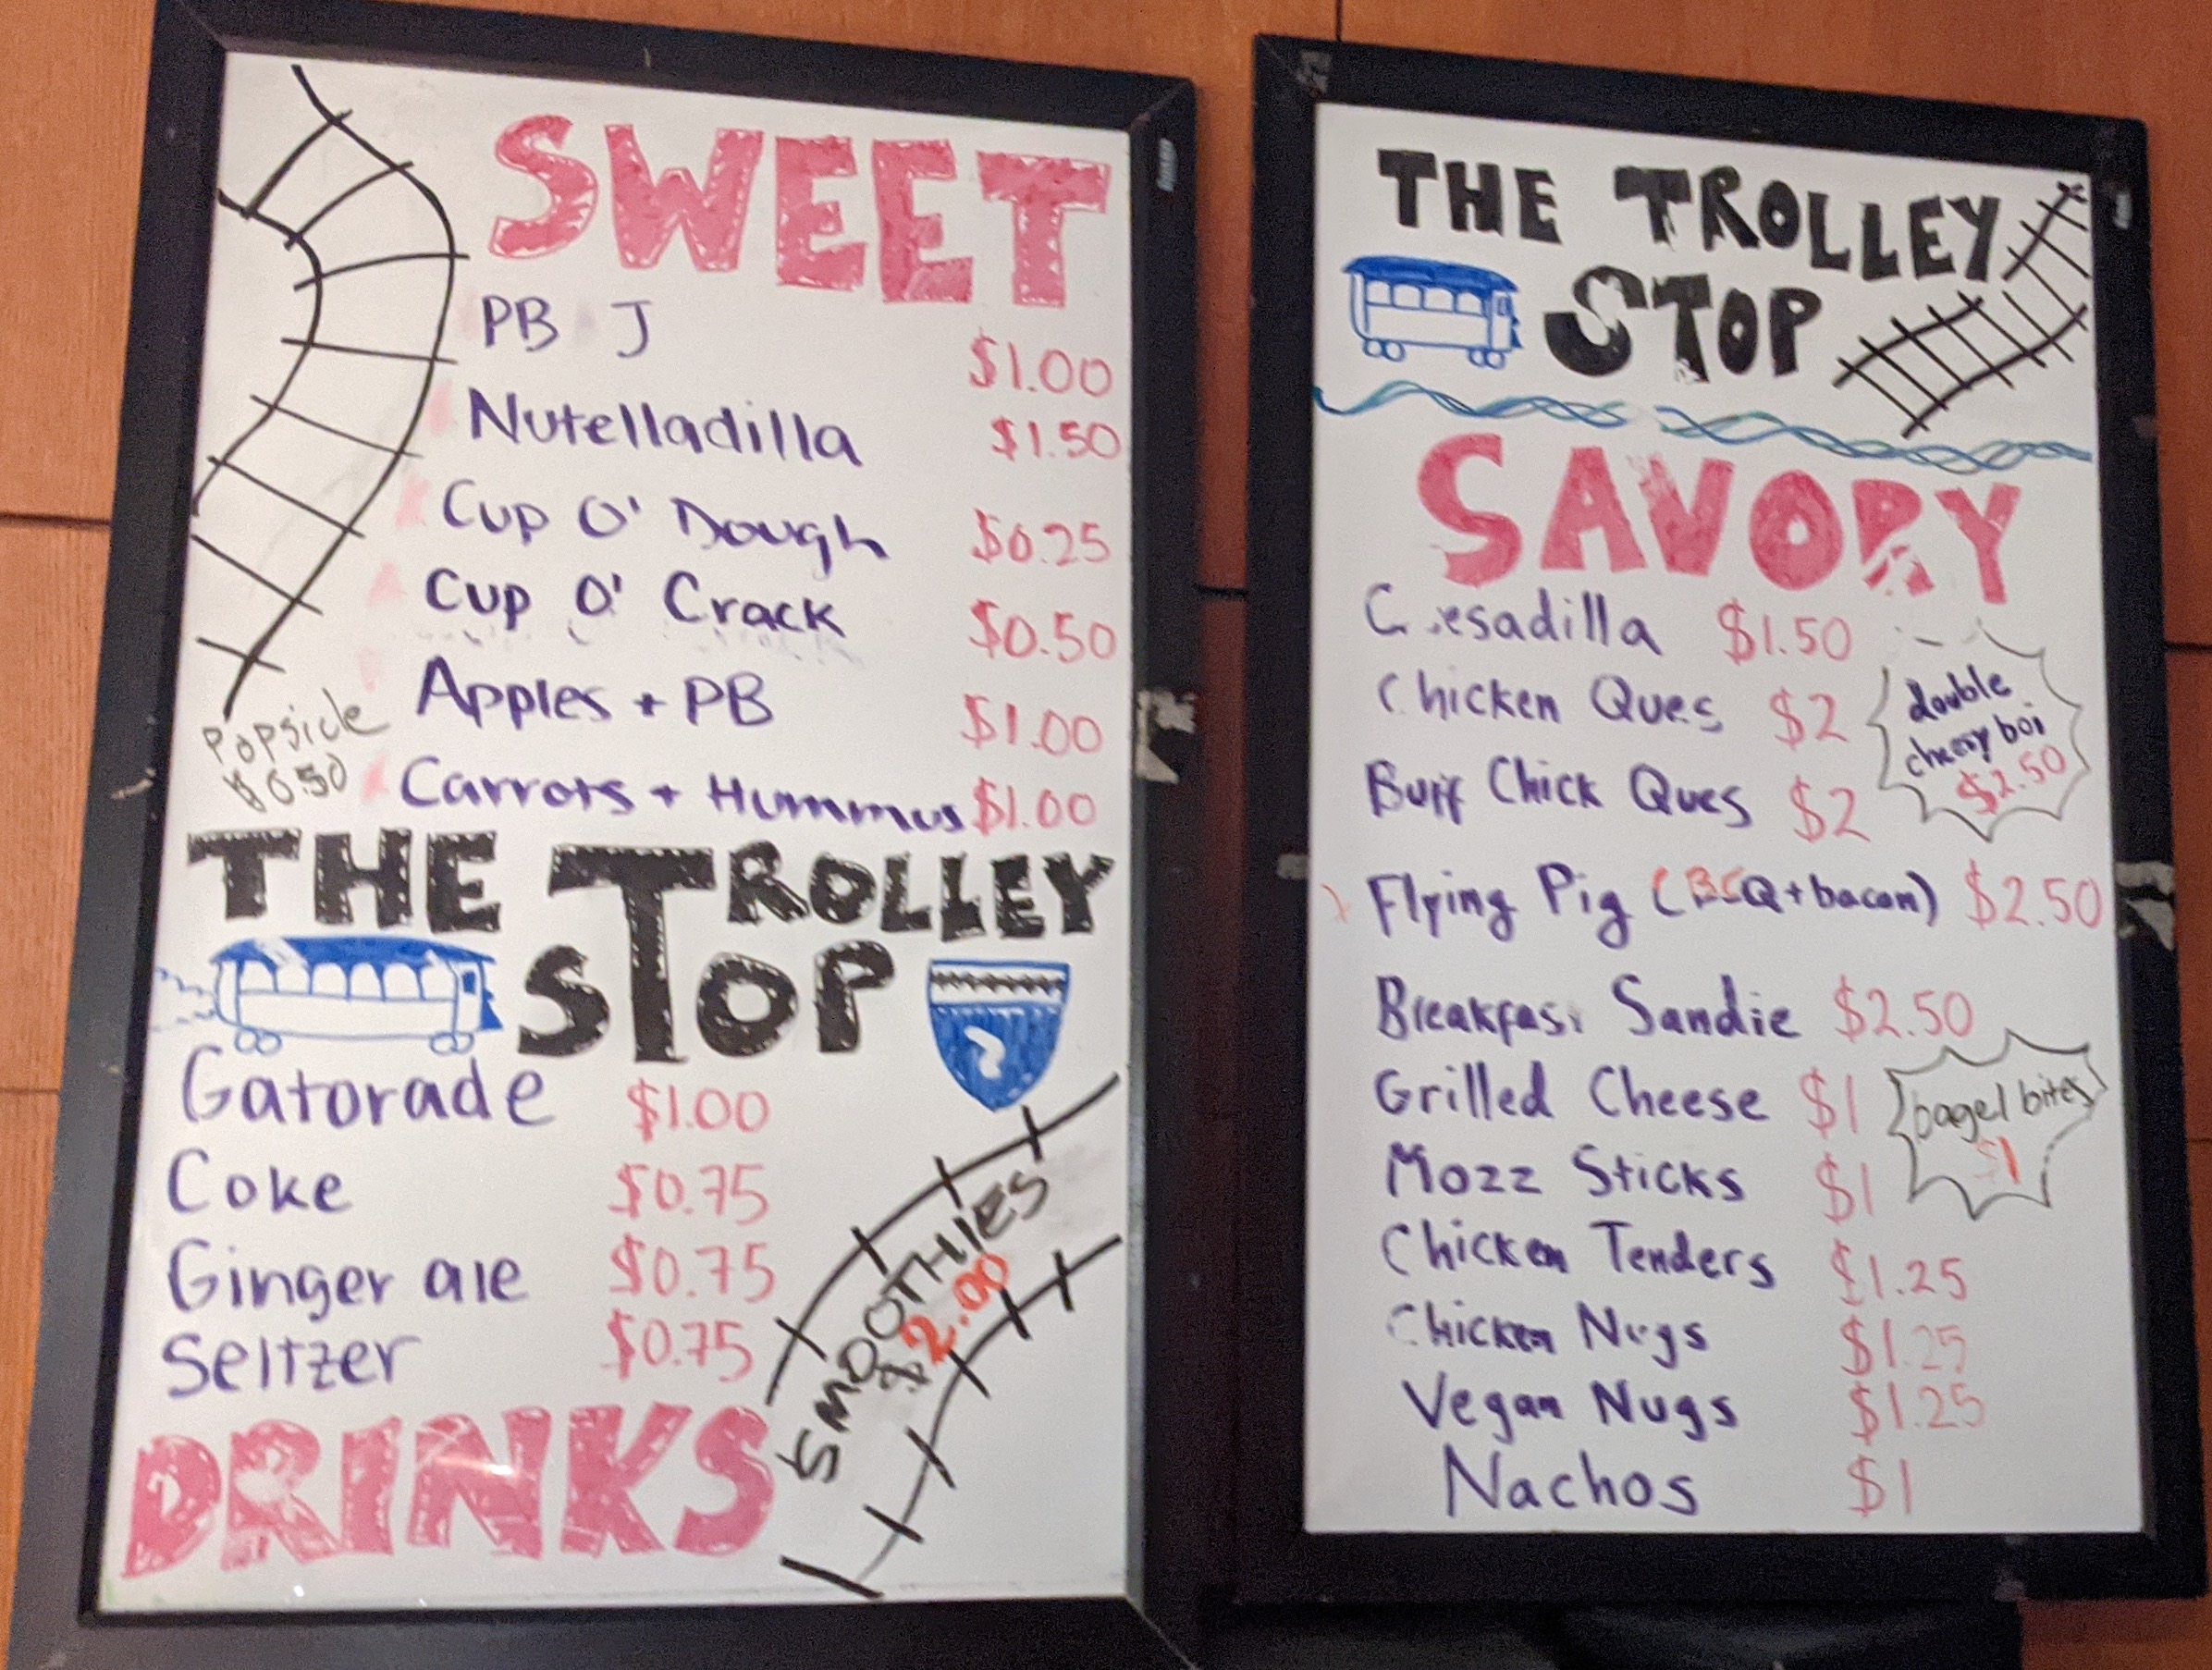 SWEET
PB J $1.00
Nutelladilla $1.50
Cup O' Dough $0.25
Cup O' Crack $0.50
Apples + PB $1.00
Carrots + Hummus $1.00
Popsicle
$0.50
THE TROLLEY
STOP
Gatorade $1.00
Coke $0.75
Ginger ale $0.75
Seltzer $0.75
DRINKS
SMOOTHIES
$2.00
THE TROLLEY
STOP
SAVORY
$1.50
Chicken Ques $2
Buff Chick Ques $2
double
cheesy boi
$2.50
Flying Pig (BCQ+bacon) $2.50
Breakfast Sandie $2.50
Grilled Cheese $1
bagel bites
$1
Mozz Sticks $1
Chicken Tenders $1.25
Chicken Nugs $1.25
Vegan Nugs $1.25
Nachos $1